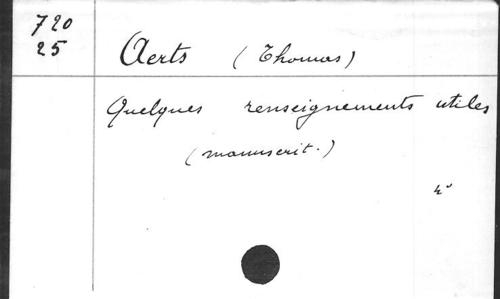 720
25
Aerts (Thomas)
Quelques renseignements utiles
(manuscrit.)
4°